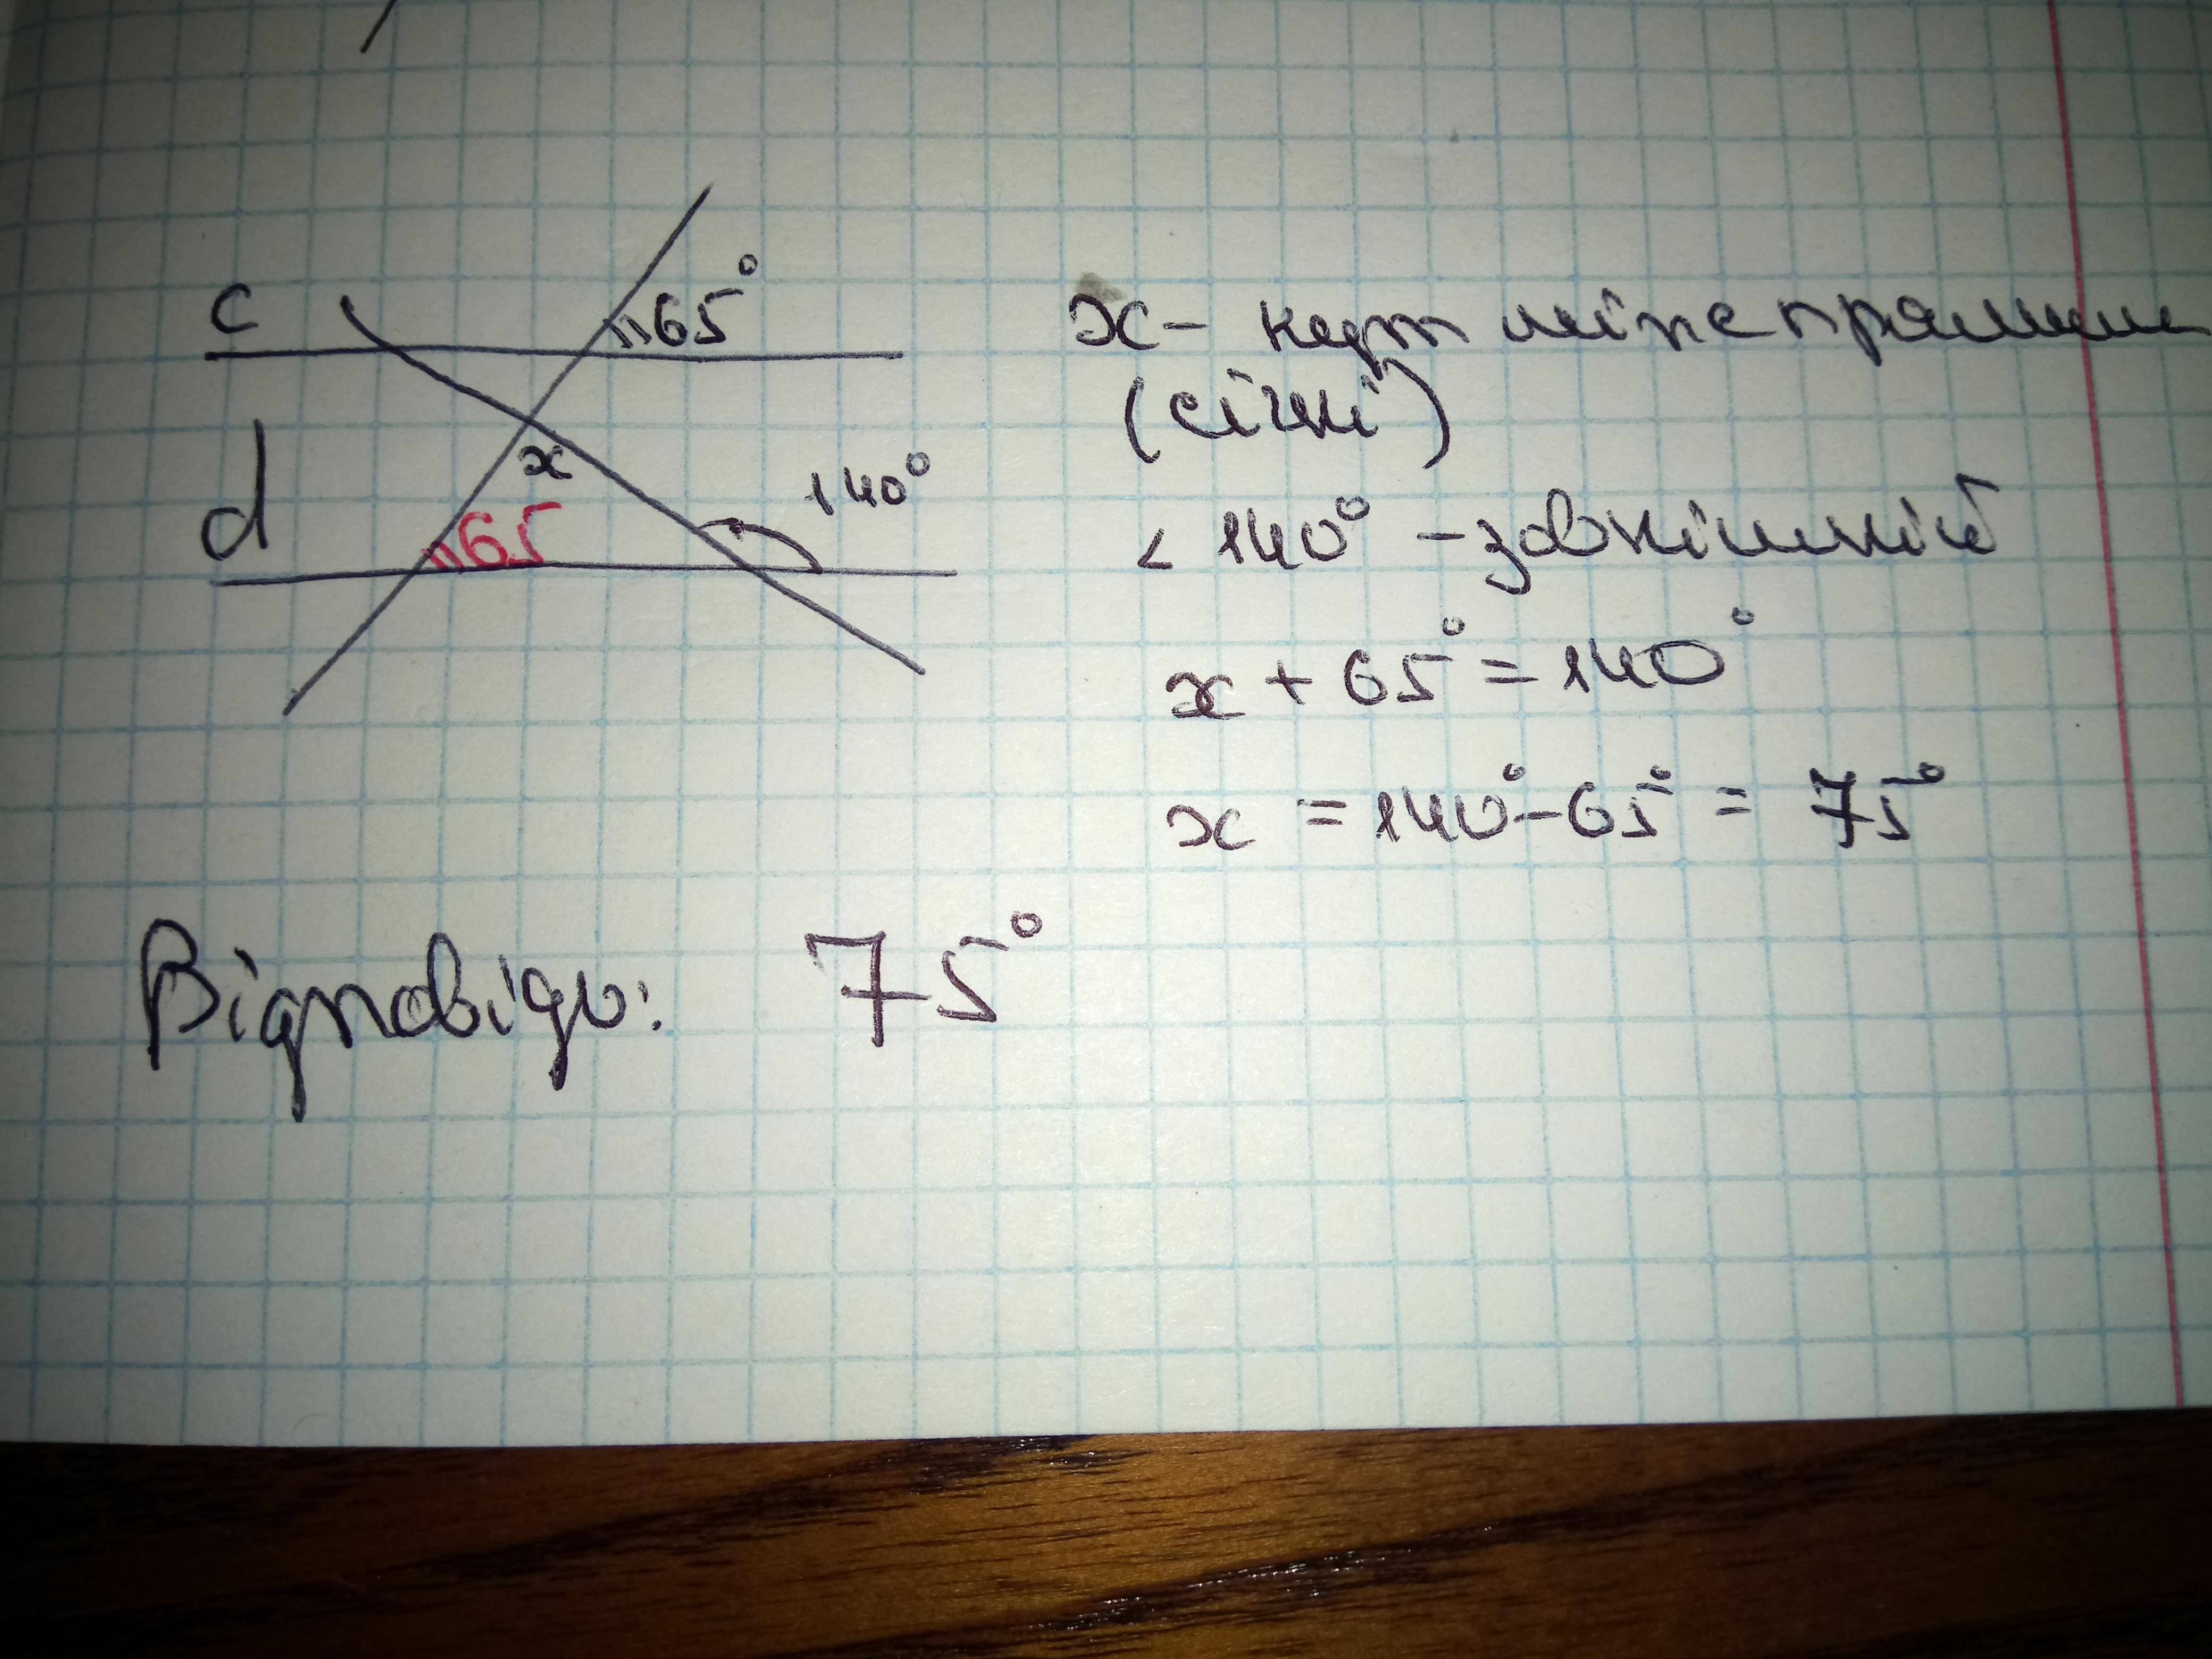 c
65°
d
x
65
140°
x - кут між прямими
(січні)
< 140° - зовнішній
x + 65° = 140°
x = 140° - 65° = 75°
Відповідь: 75°